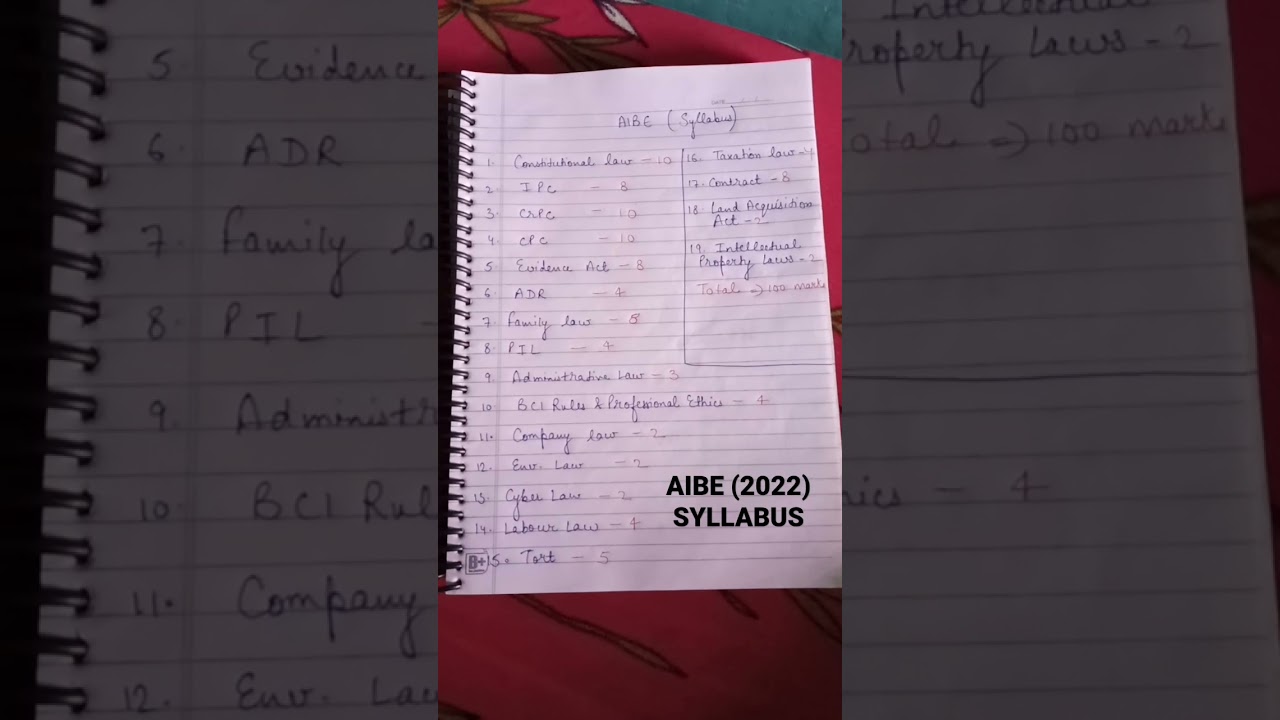 AIBE (Syllabus)
1. Constitutional law - 10
2. IPC - 8
3. CRPC - 10
4. CPC - 10
5 Evidence Act - 8
6. ADR - 4
7. Family law - 5
8. PIL - 4
9. Administrative Law - 3
10 BCI Rules & Professional Ethics - 4
11. Company law - 2
12. Env. Law - 2
13. Cyber Law - 2
14. Labour Law - 4
15. Tort - 5
16. Taxation law - 4
17. Contract - 8
18. Land Acquisition
Act - 2
19. Intellectual
Property Laws - 2
Total => 100 marks
AIBE (2022)
SYLLABUS
B+
5 Evidence
6. ADR
7. Family la
8. PIL -
9. Administr
10. BCI Rul
11. Company
12. Env. Law
Intellectual
roperty Laws - 2
otal => 100 marks
ics - 4